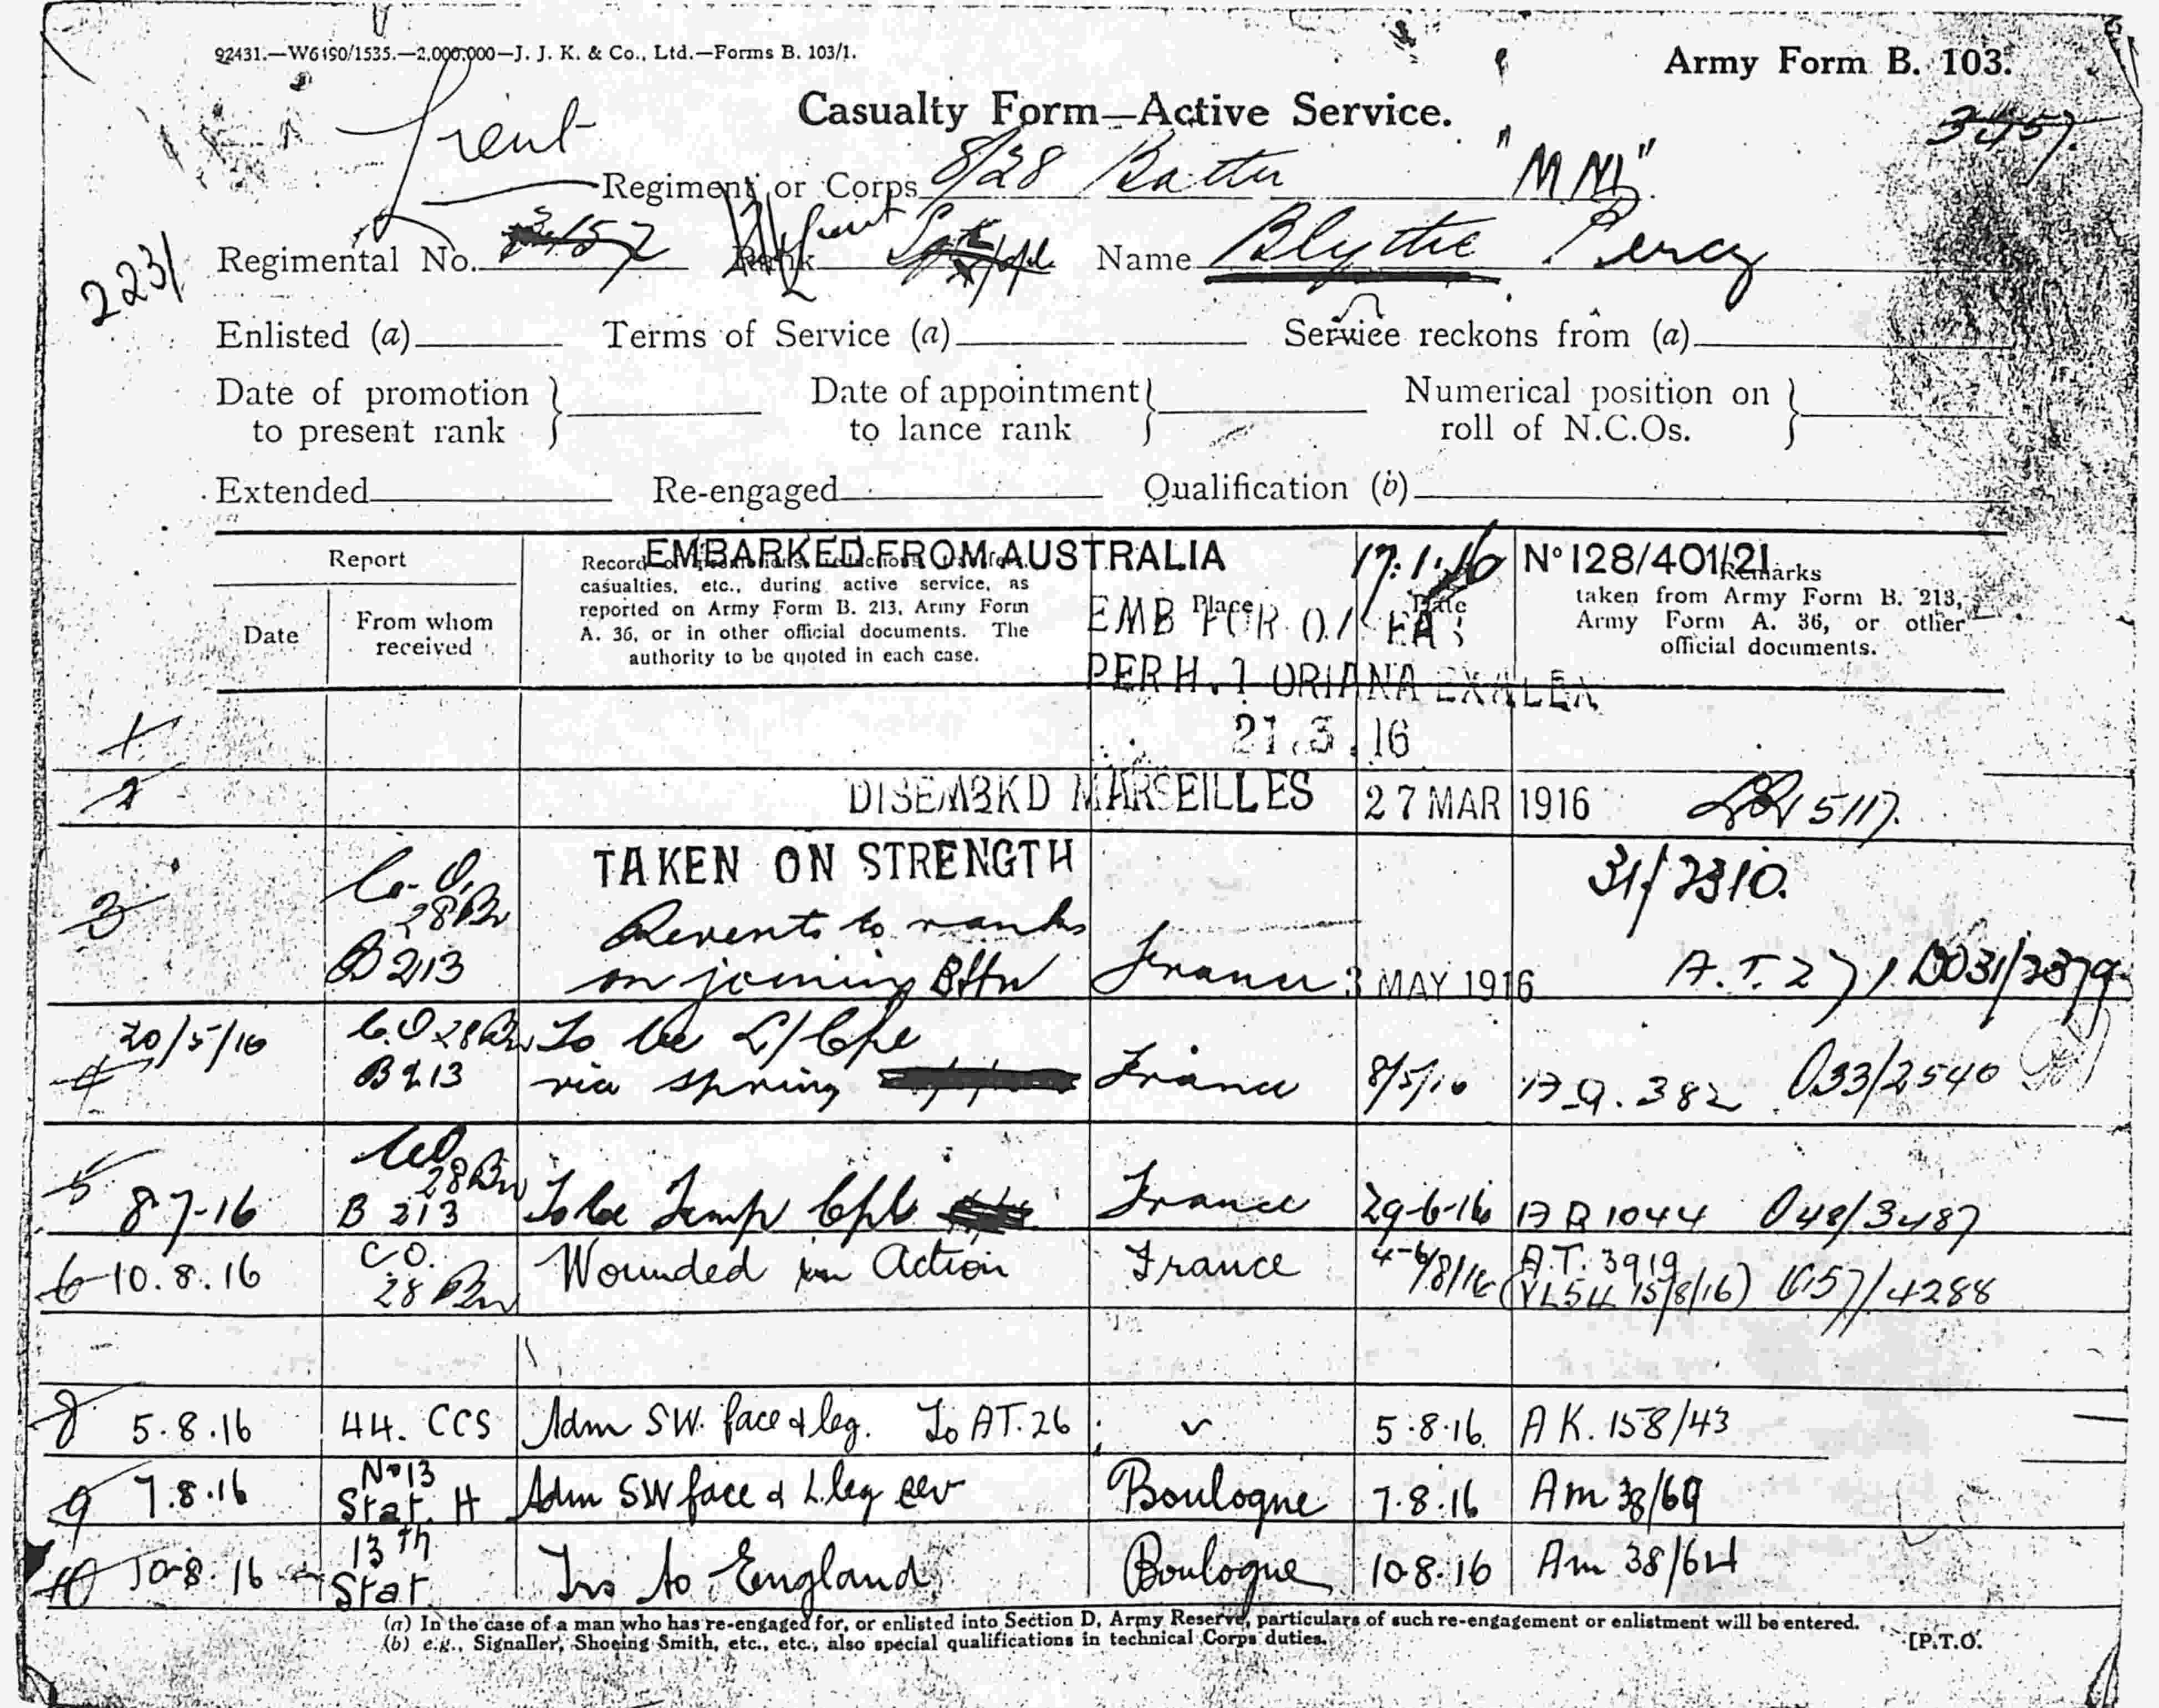 92431.—W6190/1535.—2,000,000—J. J. K. & Co., Ltd.—Forms B. 103/1.
Army Form B. 103.
Casualty Form—Active Service.
Lieut
Regiment or Corps 8/28 Battn
Regimental No. Rank Lieut Name Blythe Percy
2231
Enlisted (a) Terms of Service (a) Service reckons from (a)
Date of promotion to present rank } Date of appointment to lance rank } Numerical position on roll of N.C.Os. }
Extended Re-engaged Qualification (b)
Report
Date
From whom received
Record of promotions, reductions, transfers, casualties, etc., during active service, as reported on Army Form B. 213, Army Form A. 36, or in other official documents. The authority to be quoted in each case.
Place
Date
Remarks taken from Army Form B. 213, Army Form A. 36, or other official documents.
EMBARKED FROM AUSTRALIA 17.1.16 No 128/401/21
EMB FOR
PER H. T ORIANA EX ALEX
27.3.16
1
2 DISEMBKD MARSEILLES 27 MAR 1916 5117.
3 C.O. 28 Bn B213 TAKEN ON STRENGTH 31/2310.
Reverts to ranks
on joining Battn France 3 MAY 1916 A.T. 271. DO31/2379
4 20/5/16 C.O 28 Bn B213 To be L/Cpl
vice Spring France 8/5/16 382 O33/2540
5 8-7-16 CO 28 Bn B 213 To be Temp Cpl France 29-6-16 1044 O48/3487
6 10.8.16 CO. 28 Bn Wounded in Action France 4-6/8/16 A.T. 3919
(VL54 15/8/16) 4288
8 5.8.16 44. CCS Adm SW. face & leg. To AT. 26 5.8.16. A K. 158/43
9 7.8.16 No 13 Stat. H Adm SW face & L. leg sev Boulogne 7.8.16 Am 38/69
10 10-8.16 13th Stat. Trs to England Boulogne 10.8.16 Am 38/64
(a) In the case of a man who has re-engaged for, or enlisted into Section D, Army Reserve, particulars of such re-engagement or enlistment will be entered.
(b) e.g., Signaller, Shoeing Smith, etc., etc., also special qualifications in technical Corps duties.
[P.T.O.